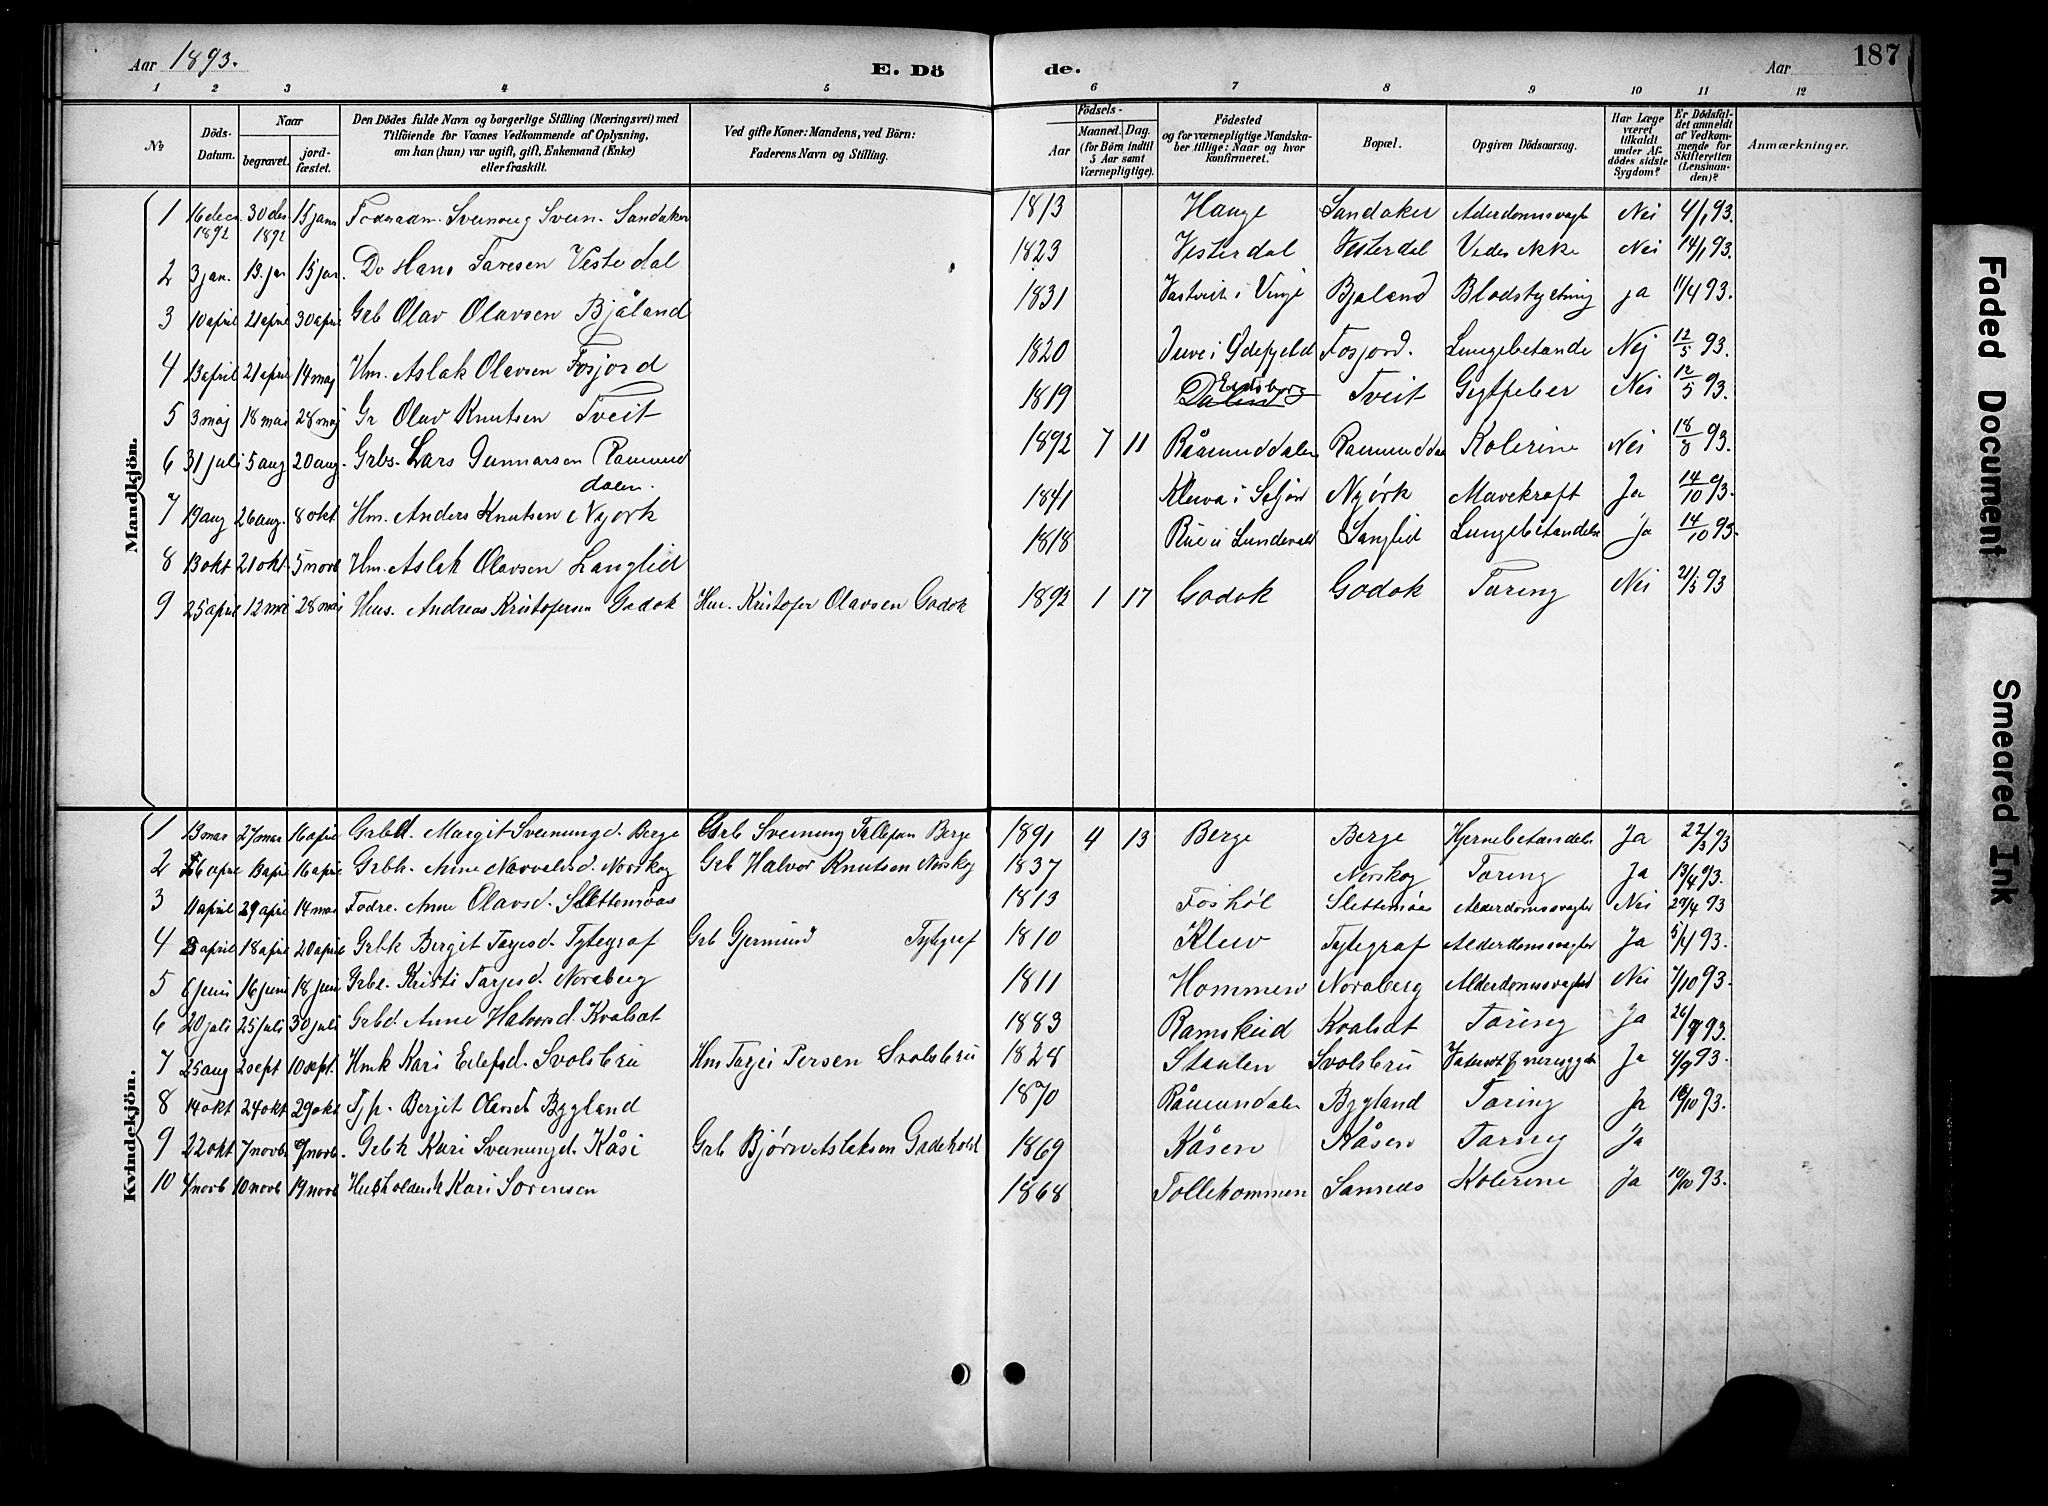 Aar 1893.
E. Dö
de.
Aar
187
1 2 3 4 5 6 7 8 9 10 11 12
No
Döds-Datum.
Naar
begravet.
jordfæstet.
Den Dödes fulde Navn og borgerlige Stilling (Næringsvei) med
Tilföiende for Voxnes Vedkommende af Oplysning,
om han (hun) var ugift, gift, Enkemand (Enke)
eller fraskilt.
Ved gifte Koner: Mandens, ved Börn:
Faderens Navn og Stilling.
Födsels-
Aar
Maaned. Dag.
(for Börn indtil
5 Aar samt
Værnepligtige).
Födested
og for værnepligtige Mandska-
ber tillige: Naar og hvor
konfirmeret.
Bopæl.
Opgiven Dödsaarsag.
Har Læge
været
tilkaldt
under Af-
dödes sidste
Sygdom?
Er Dödsfal-
det anmeldt
af Vedkom-
mende for
Skifteretten
(Lensman-
den)?
Anmærkninger.
Mandkjön.
1 16 dec 1892 30 des 1892 15 jan Svein. Sandaker 1813 Hauge Sandaker Nei 4/1 93.
2 3 jan. 13. jan 15 jan. Do Hans Taresen Vesterdal 1823 Vesterdal Vesterdal Vides ikke Nei 14/1 93.
3 10 april 21 april 30 april Grb Olav Olavsen Bjåland 1831 i Vinje Bjaland Blodstyrtning ja 11/4 93.
4 13 april 21 april 14 maj Hm. Aslak Olavsen Fosjord 1820 Fosjord. Nej 12/5 93.
5 3 maj 18 mai 28 maj Gr Olav Knutsen Tveit 1819 Tveit Nei 12/5 93.
6 31 juli 5 aug 20 aug. Grbs. Lars Gunnarsen Raamunddalen. 1892 7 11 Råamunddalen Kolerine Nei 18/8 93.
7 19 aug 26 aug. 8 okt Hm. Anders Knutsen Nyørk 1841 Nyørk Mavekræft Ja 14/10 93.
8 13 okt 21 okt 5 novb Hm. Aslak Olavsen Langlid 1818 Langlid Lungebetændelse Ja 14/10 93.
9 25 april 12 mai 28 mai Hms. Andreas Kristofersen Godok Hm. Kristofer Olavsen Godok 1892 1 17 Godok Godok Tæring Nei 2/5 93
Kvindekjön.
1 13 mar 27 mar 16 april Grbd. Margit Sveinungd. Berge Grb Sveinung Tellefsen Berge 1891 4 13 Berge Berge Hjernebetændelse Ja 22/3 93
2 6 april 13 april 16 april Grbk. Anne Norvelsd. Norskog Grb Halvor Knutsen Norskog 1837 Norskog Tæring Ja 13/4 93.
3 11 april 29 april 14 mai Fodre. Anne Olavsd. Slettemoas 1813 Foshøl Slettemoas Alderdomssvaghed Nei 29/4 93
4 3 april 18 april 20 april Grbk Bergit Tarjesd. Tytegraf Grb Gjermund Tytegraf 1810 Klev Tytegraf Alderdomssvaghed Ja 5/4 93.
5 6 juni 16 juni 18 juni Grbe. Kristi Tarjesd. Noraberg 1811 Hommen Noraberg Alderdomssvaghed Nei 7/10 93.
6 20 juli 25 juli 30 juli Grbd. Anne Halvorsd. Kvalsat 1883 Kvalsat Tæring Ja 26/7 93.
7 25 aug 2 sept 10 sept. Hmk Kari Eilefsd. Svolsbru Hm Tarjei Persen Svolsbru 1828 Staulen Svolsbru Ja 4/9 93.
8 14 okt 24 okt 29 okt Tjp. Bergit Olavsd Bygland 1870 Råmundalen Bygland Tæring Ja 16/10 93.
9 22 okt 7 novb 9 novb. Grbk Kari Sveinungd. Kåsi Grb Bjørn Aslaksen 1869 Kåsen Kåsen Tæring Ja
10 4 novb 10 novb 19 novb Kari Sørensen 1868 Sannes Kolerine Ja 10/10 93.
Faded Document
Smeared Ink